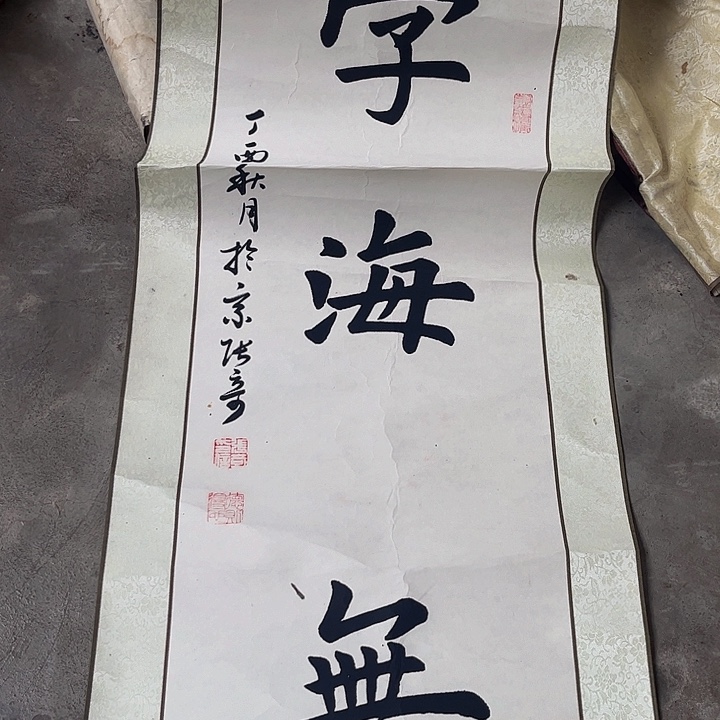 字海無
丁酉秋月於京張奇